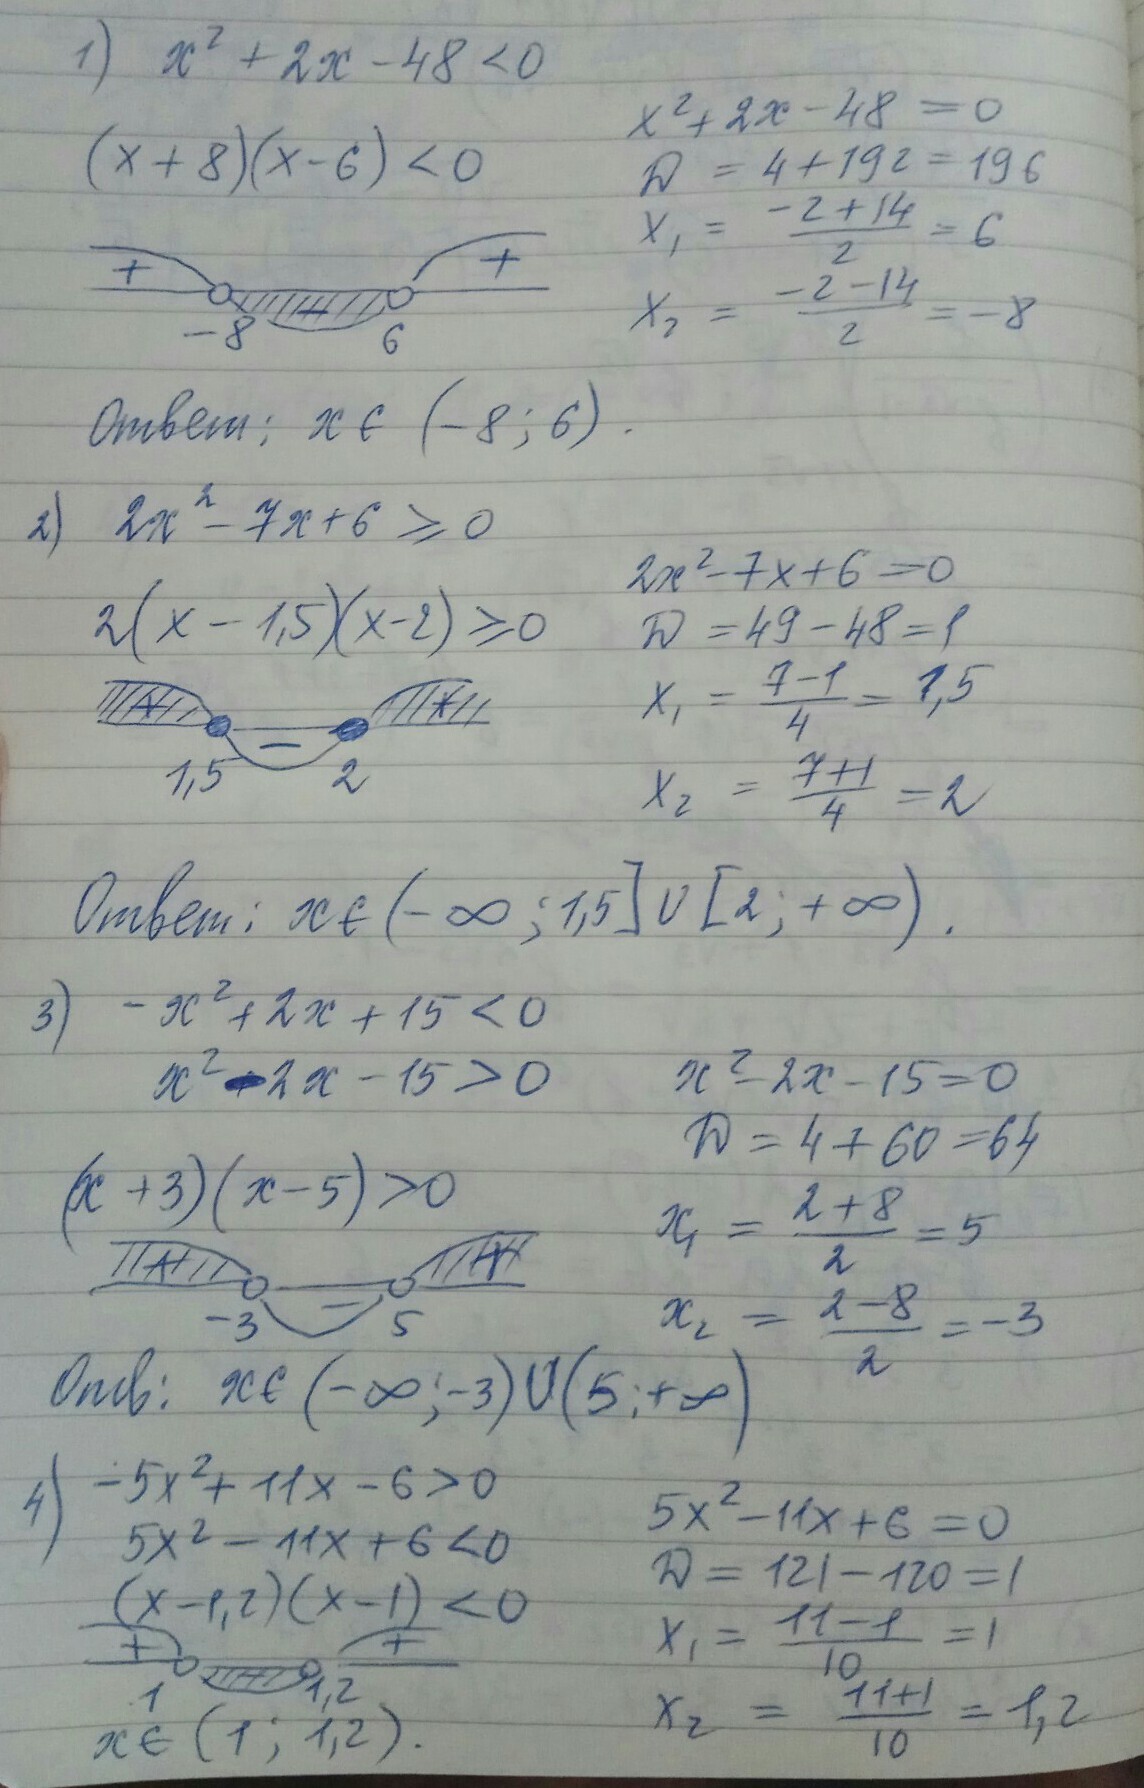 1) x² + 2x - 48 < 0
(x + 8)(x - 6) < 0
+ +
-8 6
x² + 2x - 48 = 0
D = 4 + 192 = 196
x₁ = (-2 + 14)/2 = 6
x₂ = (-2 - 14)/2 = -8
Ответ: x ∈ (-8; 6).
2) 2x² - 7x + 6 ⩾ 0
2(x - 1,5)(x - 2) ⩾ 0
+ - +
1,5 2
2x² - 7x + 6 = 0
D = 49 - 48 = 1
x₁ = (7 - 1)/4 = 1,5
x₂ = (7 + 1)/4 = 2
Ответ: x ∈ (-∞; 1,5] ∪ [2; +∞).
3) -x² + 2x + 15 < 0
x² - 2x - 15 > 0
(x + 3)(x - 5) > 0
+ - +
-3 5
x² - 2x - 15 = 0
D = 4 + 60 = 64
x₁ = (2 + 8)/2 = 5
x₂ = (2 - 8)/2 = -3
Отв: x ∈ (-∞; -3) ∪ (5; +∞)
4) -5x² + 11x - 6 > 0
5x² - 11x + 6 < 0
(x - 1,2)(x - 1) < 0
+ +
1 1,2
x ∈ (1; 1,2).
5x² - 11x + 6 = 0
D = 121 - 120 = 1
x₁ = (11 - 1)/10 = 1
x₂ = (11 + 1)/10 = 1,2